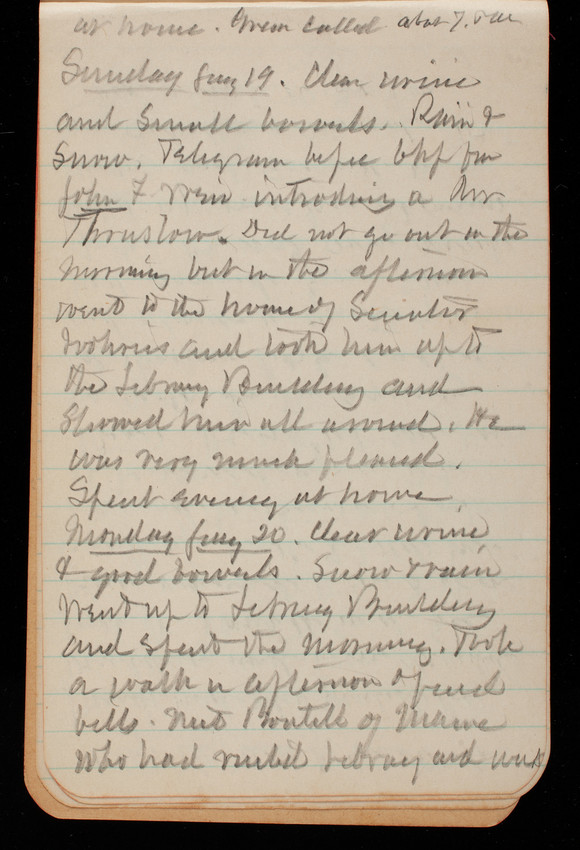 at home. Green called about 7.
Sunday Jany 19. Clear urine
and small bowels. Rain &
Snow. Telegram before bkf from
John F Weir introducing a Mr
Thruslow. Did not go out in the
morning but in the afternoon
went to the home of Senator
and took him up to
the Library Building and
showed him all around. He
was very much pleased.
Spent evening at home
Monday Jany 20. Clear urine
& good bowels. Snow & rain
Went up to Library Building
and spent the morning. Took
a walk in afternoon & paid
bills. Met Boutelle of Maine
who had visited Library and